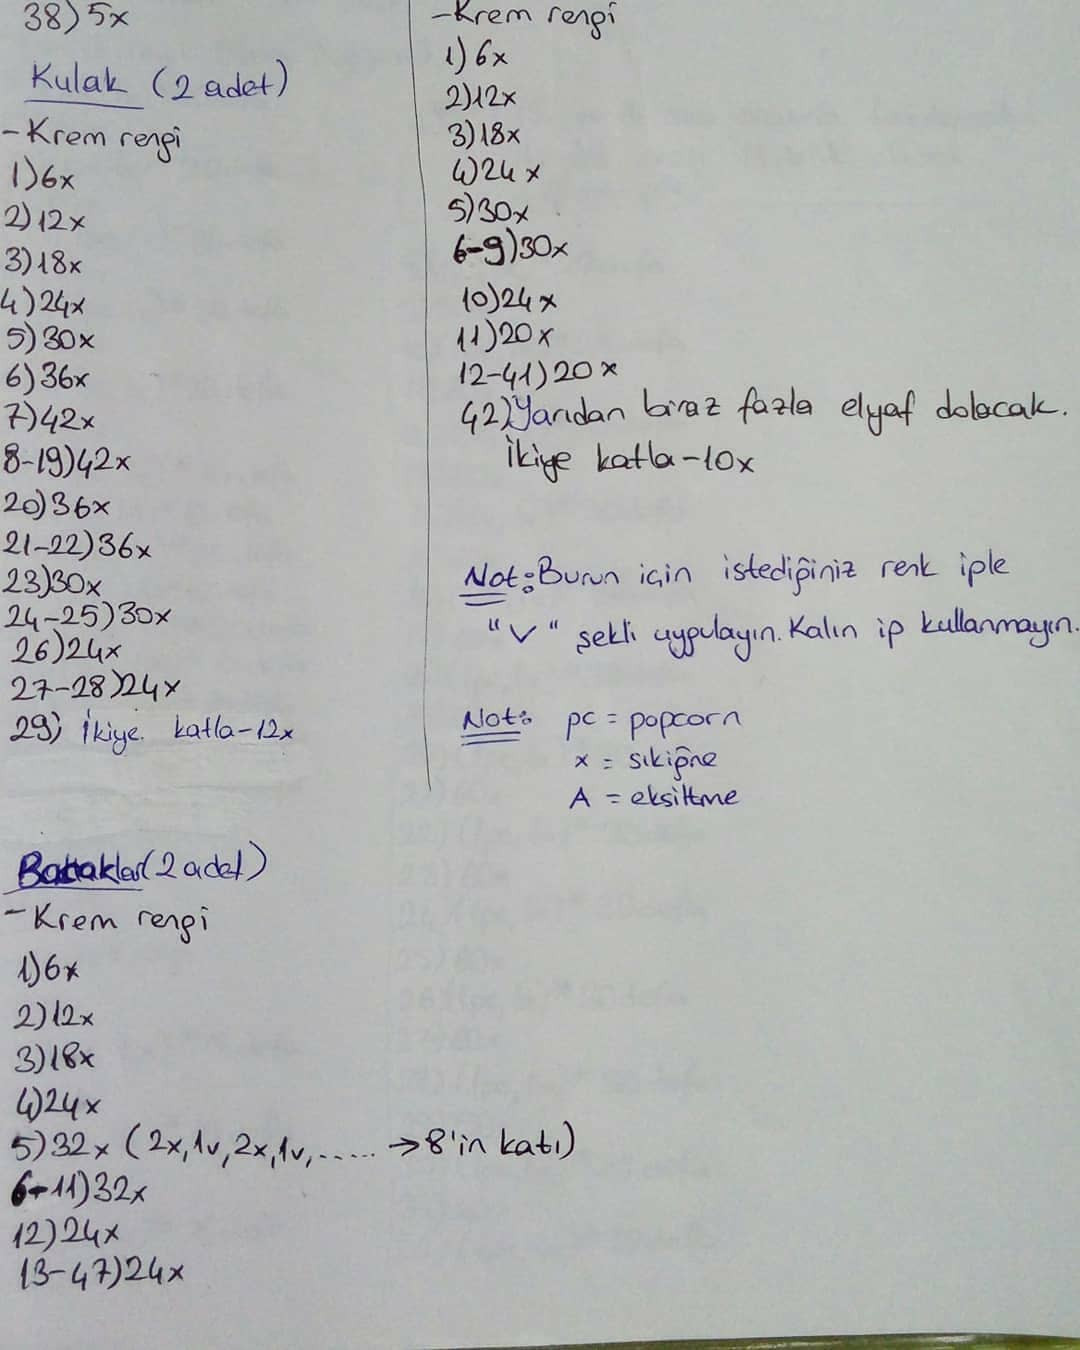 38) 5x
Kulak (2 adet)
-Krem rengi
1)6x
2)12x
3)18x
4)24x
5)30x
6)36x
7)42x
8-19)42x
20)36x
21-22)36x
23)30x
24-25)30x
26)24x
27-28)24x
29) İkiye katla-12x
Bacaklar(2 adet)
-Krem rengi
1)6x
2)12x
3)18x
4)24x
5)32x (2x,1v,2x,1v,..... →8'in katı)
6-11)32x
12)24x
13-47)24x
-Krem rengi
1)6x
2)12x
3)18x
4)24x
5)30x
6-9)30x
10)24x
11)20x
12-41)20x
42)Yarıdan biraz fazla elyaf dolacak.
İkiye katla-10x
Not:Burun için istediğiniz renk iple
"V" şekli uygulayın. Kalın ip kullanmayın.
Not: pc = popcorn
x = sıkiğne
A = eksiltme